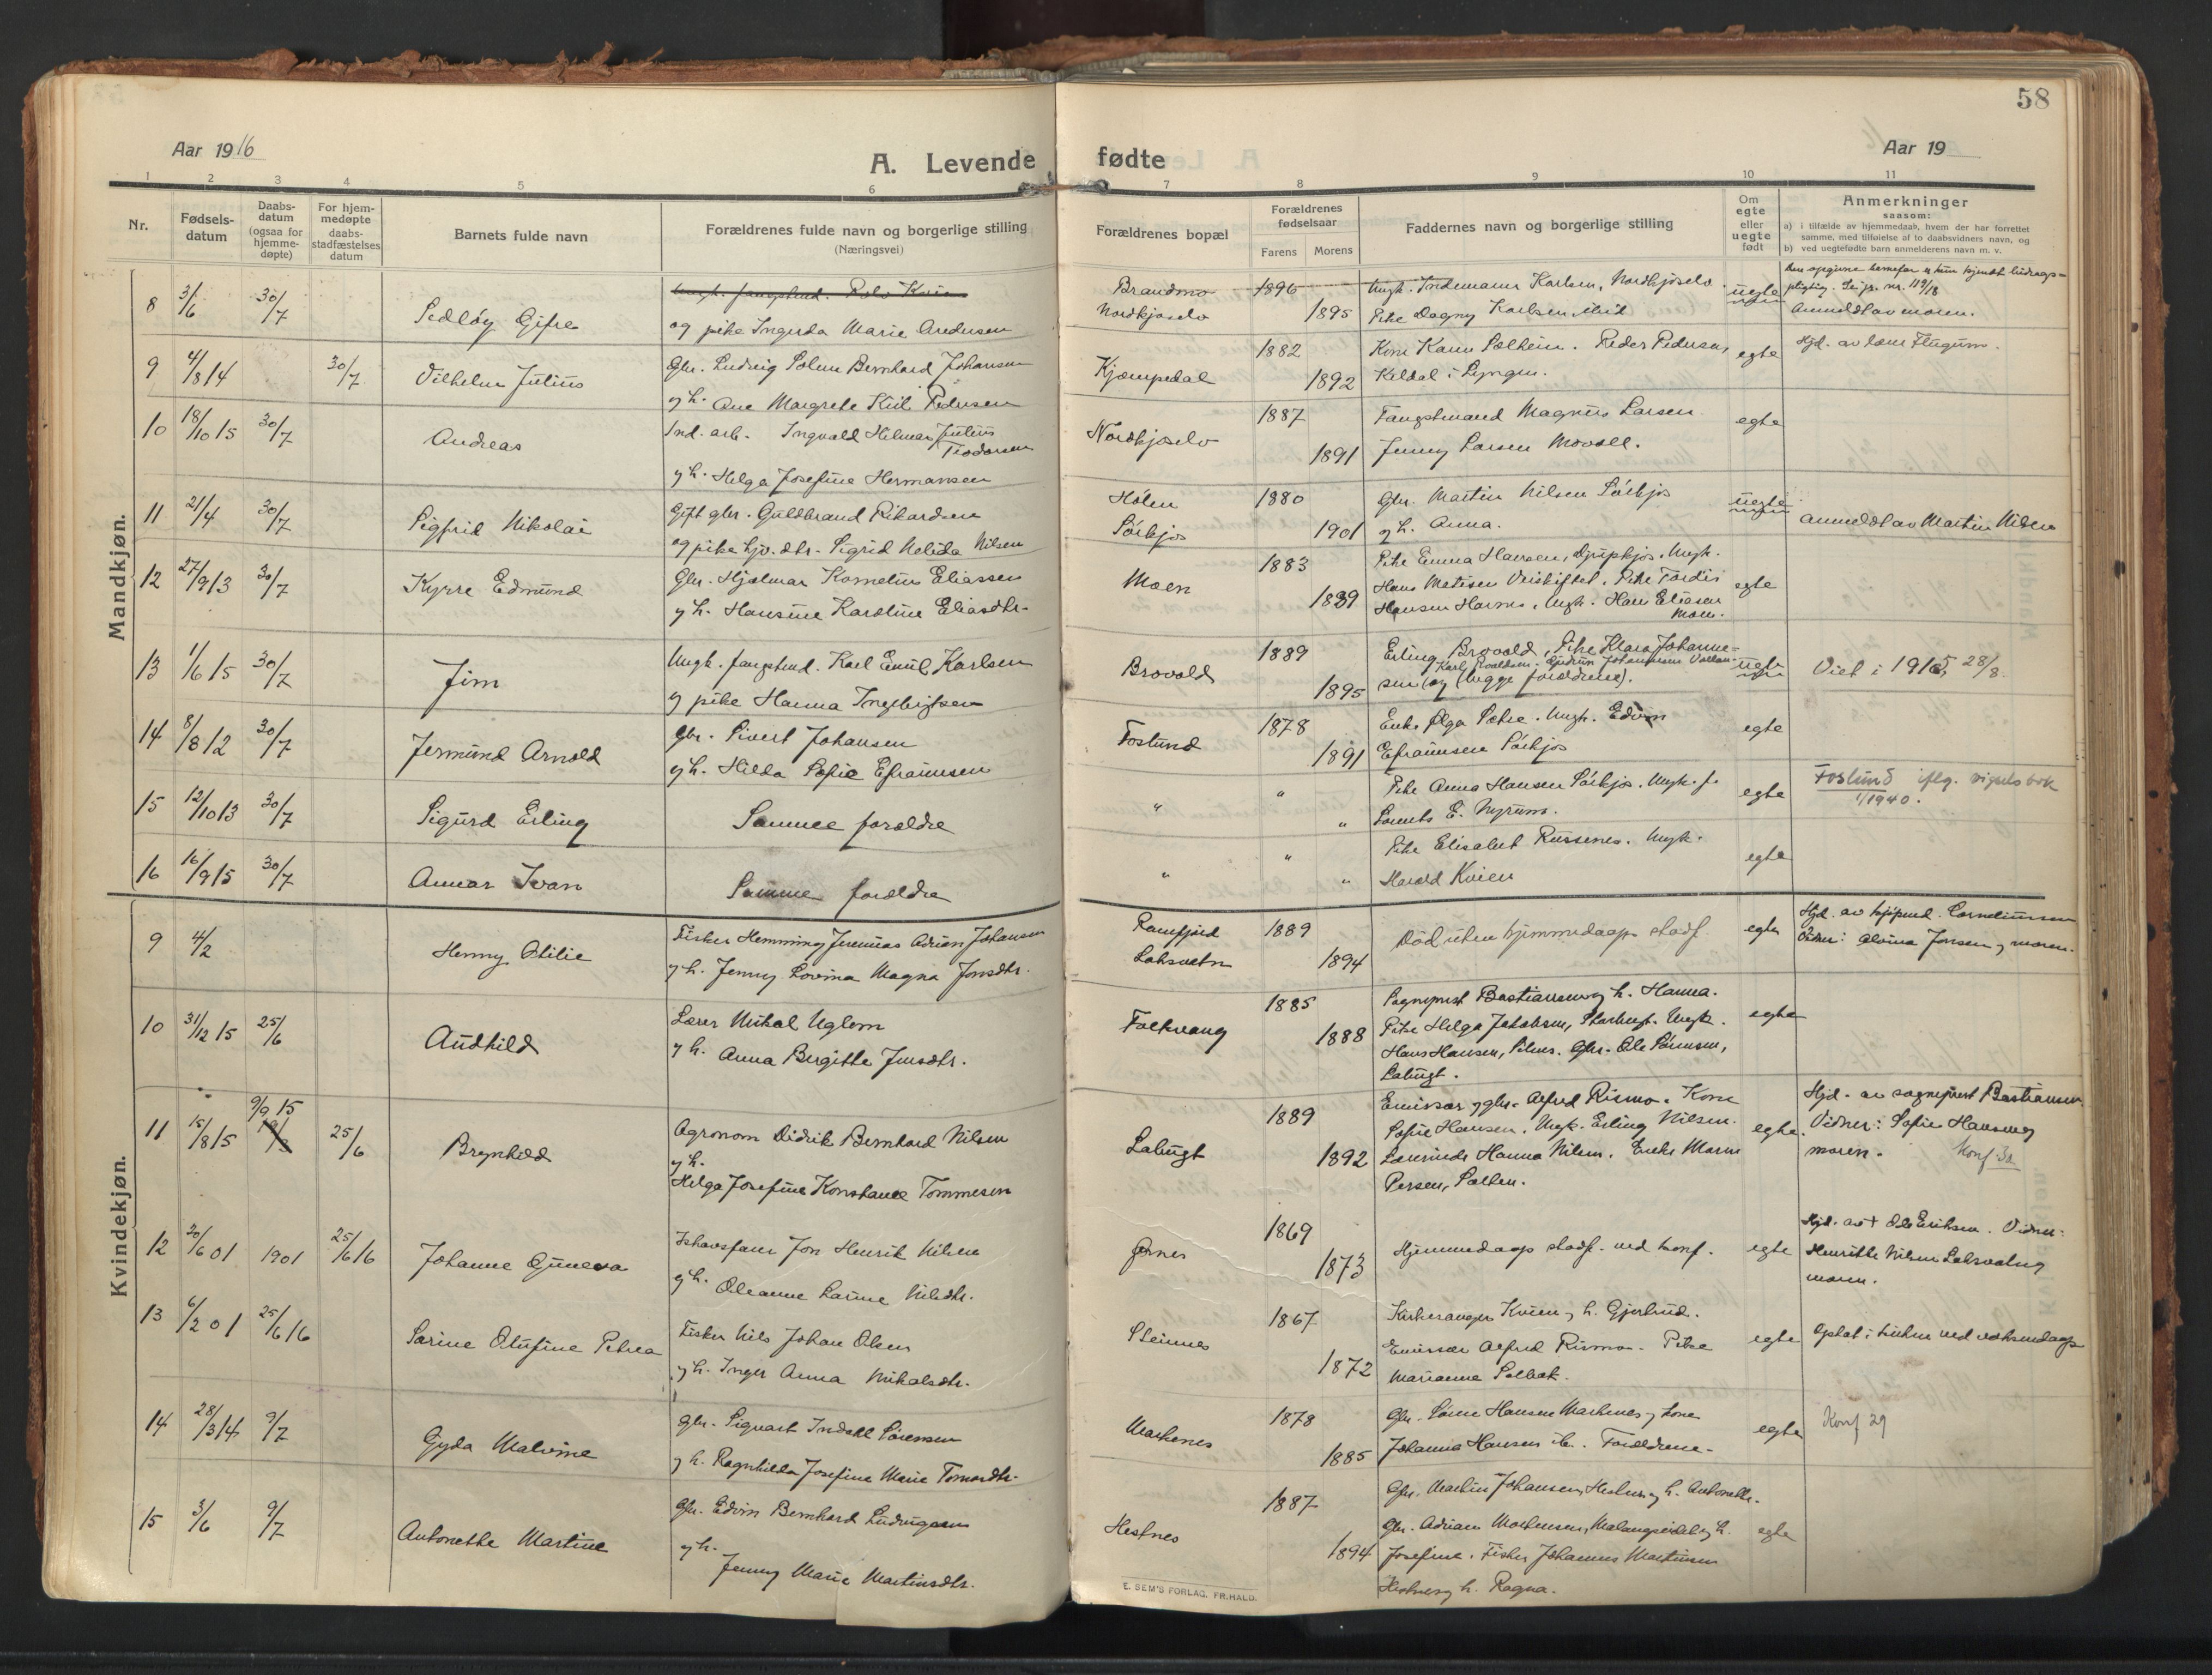 58
Aar 1916
A. Levende fødte
Aar 19
1 2 3 4 5 6 7 8 9 10 11
Nr.
Fødsels-
datum
Daabs-
datum
(ogsaa for
hjemme-
døpte)
For hjem-
medøpte
daabs-
stadfæstelses
datum
Barnets fulde navn
Forældrenes fulde navn og borgerlige stilling
(Næringsvei)
Forældrenes bopæl
Forældrenes
fødselsaar
Farens Morens
Faddernes navn og borgerlige stilling
Om
egte
eller
uegte
født
Anmerkninger
saasom:
a) i tilfælde av hjemmedaab, hvem der har forrettet
samme, med tilføielse af to daabsvidners navn, og
b) ved uegtefødte barn anmelderens navn m. v.
Mandkjøn.
8 3/6 30/7 Sedløy Gifre
og pike Ingerda Marie Andersen
Brandmo
Nordkjoselv
1896
1895
Ungk. Indemann Karlsen, Nordkjoselv
Pike Dagny Karlsen ibid
uegte
Anmeldt av moren.
9 4/8 14 30/7 Vilhelm Julius
Gbr. Ludvig Solum Bernhard Johansen
og h. Ane Margrete Kiil Pedersen
Kjempedal
1882
1892
Kone Karen Solheim. Peder Pedersen,
Kildal i Lyngen.
egte
Hjd. av lærer Flugum.
10 18/10 15 30/7 Andreas
Ind. arb. Ingvald Hilmar Julius
Teodorsen
og h. Helga Josefine Hermansen
Nordkjoselv
1887
1891
Fangstmand Magnus Larsen
Jenny Larsen Movold.
egte
11 21/4 30/7 Sigfrid Nikolai
Gift gbr. Guldbrand Rikardsen
og pike hjv. dtr. Sigrid Nelida Nilsen
Holen
Sørkjos
1880
1901
Gbr. Martin Nilsen Sørkjos
og h. Anna.
uegte
Anmeldt av Martin Nilsen
12 27/9 13 30/7 Kyrre Edmund
Gbr. Hjalmar Kornelius Eliassen
og h. Hansine Karoline Eliasdtr.
Moen
1883
1889
Pike Emma Hansen, Djupkjos. Ungk.
Hans Matisen Vriskiftet. Pike Tordis
Hansen Havnes. Ungk. Hans Eliasen
Moen.
egte
13 1/6 15 30/7 Jim
Ungk. fangstmd. Karl Emil Karlsen
og pike Hanna Ingebrigtsen
Brovold
1889
1895
Erling Brovold, Pike Klara Johanne-
sen og (begge forældrene).
uegte
Viet i 1915 28/8.
14 8/8 12 30/7 Jermund Arnold
Gbr. Sivert Johansen
og h. Hilda Sofie Efraimsen
Foslund
1878
1891
Enke Olga Sætre. Ungk. Edvin
Efraimsen Sørkjos
egte
15 12/10 13 30/7 Sigurd Erling
Samme forældre
" " "
Pike Anna Hansen Sørkjos. Ungk. f.
Lorents E. Nyrum.
egte
Foslund iflg. vigselsbok
1/1940.
16 16/9 15 30/7 Annar Ivan
Samme forældre
" " "
Pike Elisabet Russenes. Ungk.
Harald Kvien
egte
Kvindekjøn.
9 4/2 Henny Otilie
Fisker Hemming Jeremias Adrian Johansen
og h. Jenny Lovina Magna Jonsdtr.
Ramfjord
Laksvatn
1889
1894
Død uten hjemmedaaps stadf.
egte
Hjd. av kjøpmd. Corneliussen
Vidner: Alvina Jonsen og moren.
10 31/12 15 25/6 Audhild
Lærer Mikal Uglem
og h. Anna Birgitte Jensdtr.
Folkvang
1885
1888
Sogneprest Bastiansen og h. Hanna.
Pike Helga Jakobsen, Storbugt. Ungk.
Hans Hansen, Silnes. Gbr. Ole Sørensen,
Balsugt.
egte
11 15/8 15 9/9 15 25/6 Brynhild
Agronom Didrik Bernhard Nilsen
og h.
Helga Josefine Konstance Tommesen
1889
1892
Emissær og gbr. Alfred Rismo. Kone
Sofie Hansen. Ungk. Erling Nilsen.
Lærerinde Hanna Nilsen. Enke Maren
Persen, Sollien.
egte.
Hjd. av sogneprest Bastiansen
Vidner: Sofie Hansen og
moren. Konf 30
12 20/6 01 1901 25/6 16 Johanne Guneva
Ishavsfarer Jon Henrik Nilsen
og h. Oleanne Larine Nilsdtr.
1869
1873
Hjemmedaap stadf. ved konf.
egte
Hjd. av + Ole Eriksen. Vidner:
Henrikke Nilsen Laksvatn og
moren.
13 6/2 01 25/6 16 Sarine Olufine Petrea
Fisker Nils Johan Olsen
og h. Inger Anna Mikalsdtr.
Steinnes
1867
1872
Kirkesanger Kvien og h. Gjertrud.
Emissær Alfred Rismo. Pike
Marianne Solbak.
egte
Optat i kirken ved voksendaap
14 28/3 14 9/7 Gyda Malvine
Gbr. Sigvart Indahl Sørensen
og h. Ragnhilda Josefine Marie Tomasdtr.
Markenes
1878
1885
Gbr. Søren Hansen Markenes og kone
Johanna Hansen ib. Forældrene.
egte
Konf 29
15 3/6 9/7 Antonethe Martine
Gbr. Edvin Bernhard Ludvigsen
og h.
Jenny Marie Martinsdtr.
Hestnes
1887
1894
Gbr. Martin Johansen, Hestnes og h. Antonette.
Gbr. Adrian Mortensen, Malangseidet og h.
Josefine. Fisker Johannes Martinsen
Hestnes og h. Ragna.
egte
E. SEM'S FORLAG, FR.HALD.